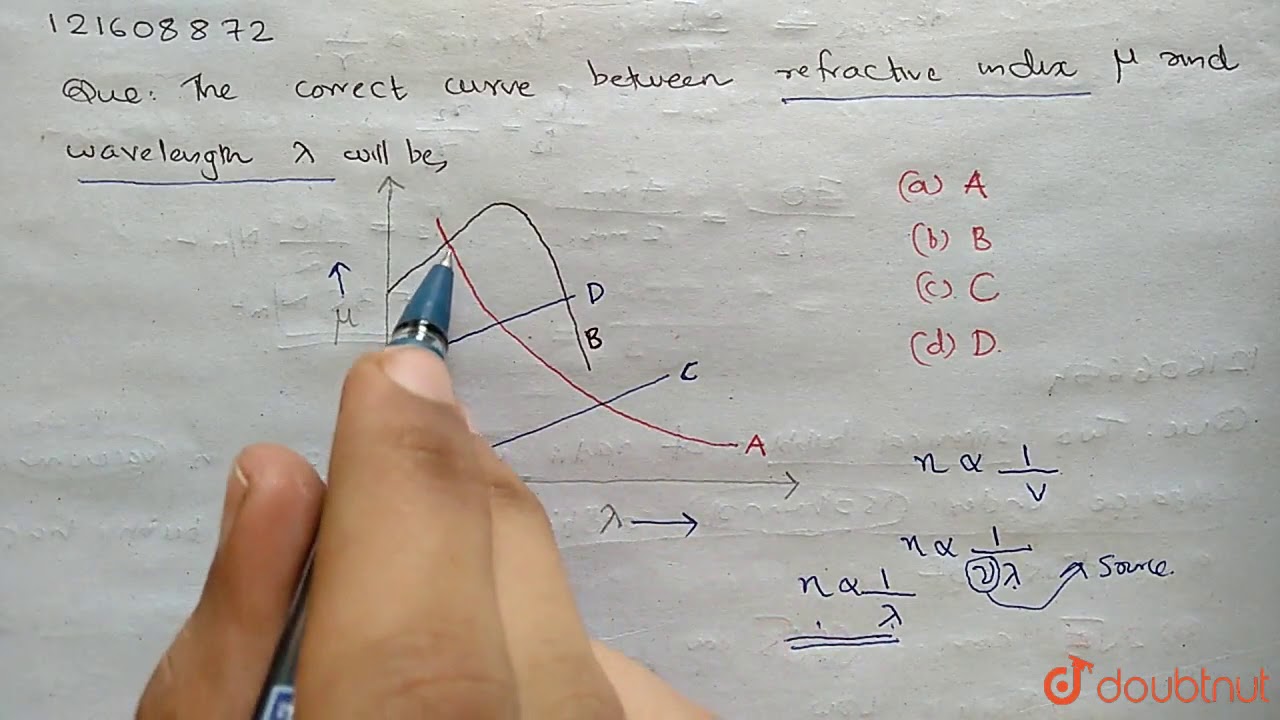 121608872
Que: The correct curve between refractive index μ and
wavelength λ will be,
(a) A
(b) B
(c) C
(d) D.
μ
D
B
C
A
λ
n ∝ 1/v
n ∝ 1/νλ Source.
n ∝ 1/λ
doubtnut